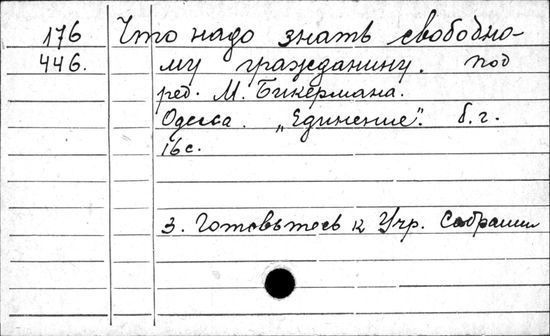 176 Что надо знать свободно-
446. му гражданину. под
ред. М. Бикермана.
Одесса. „Единение". б.г.
16 с.
3. Готовьтесь к Учр. Собранию